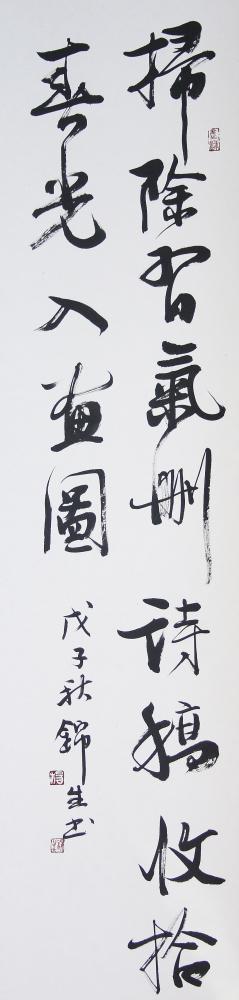 掃除習氣刪詩稿收拾
春光入畫圖
戊子秋錦生书